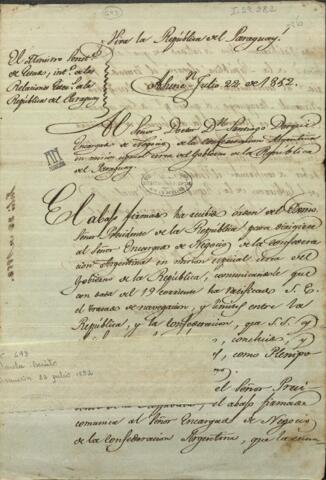 I-29.282
Viva la República del Paraguay!
El Ministro Secret.
de Guerra, int.º de las
Relaciones Exter.s de la
República del Paraguay
Asunc.n Julio 22 de 1852.
Al Señor Doctor D.n Santiago Derqui
Encargado de Negocios de la Confederacion Argentina
en mision especial cerca del Gobierno de la Republica
del Paraguay.
El abajo firmado ha recibido órden del Exmo
Señor Presidente de la República para dirigirse
al Señor Encargado de Negocios de la Confedera
cion Argentina en mision especial cerca del
Gobierno de la República, comunicandole que
con data del 19 corriente ha ratificado S. E.
el tratado de navegacion, y límites entre la
República, y la Confederacion, que S.S. y
, concluido, y
, como Plenipo
el Señor Presi
el abajo firmado
comunica al Señor Encargado de Negocios
de la Confederacion Argentina, que la